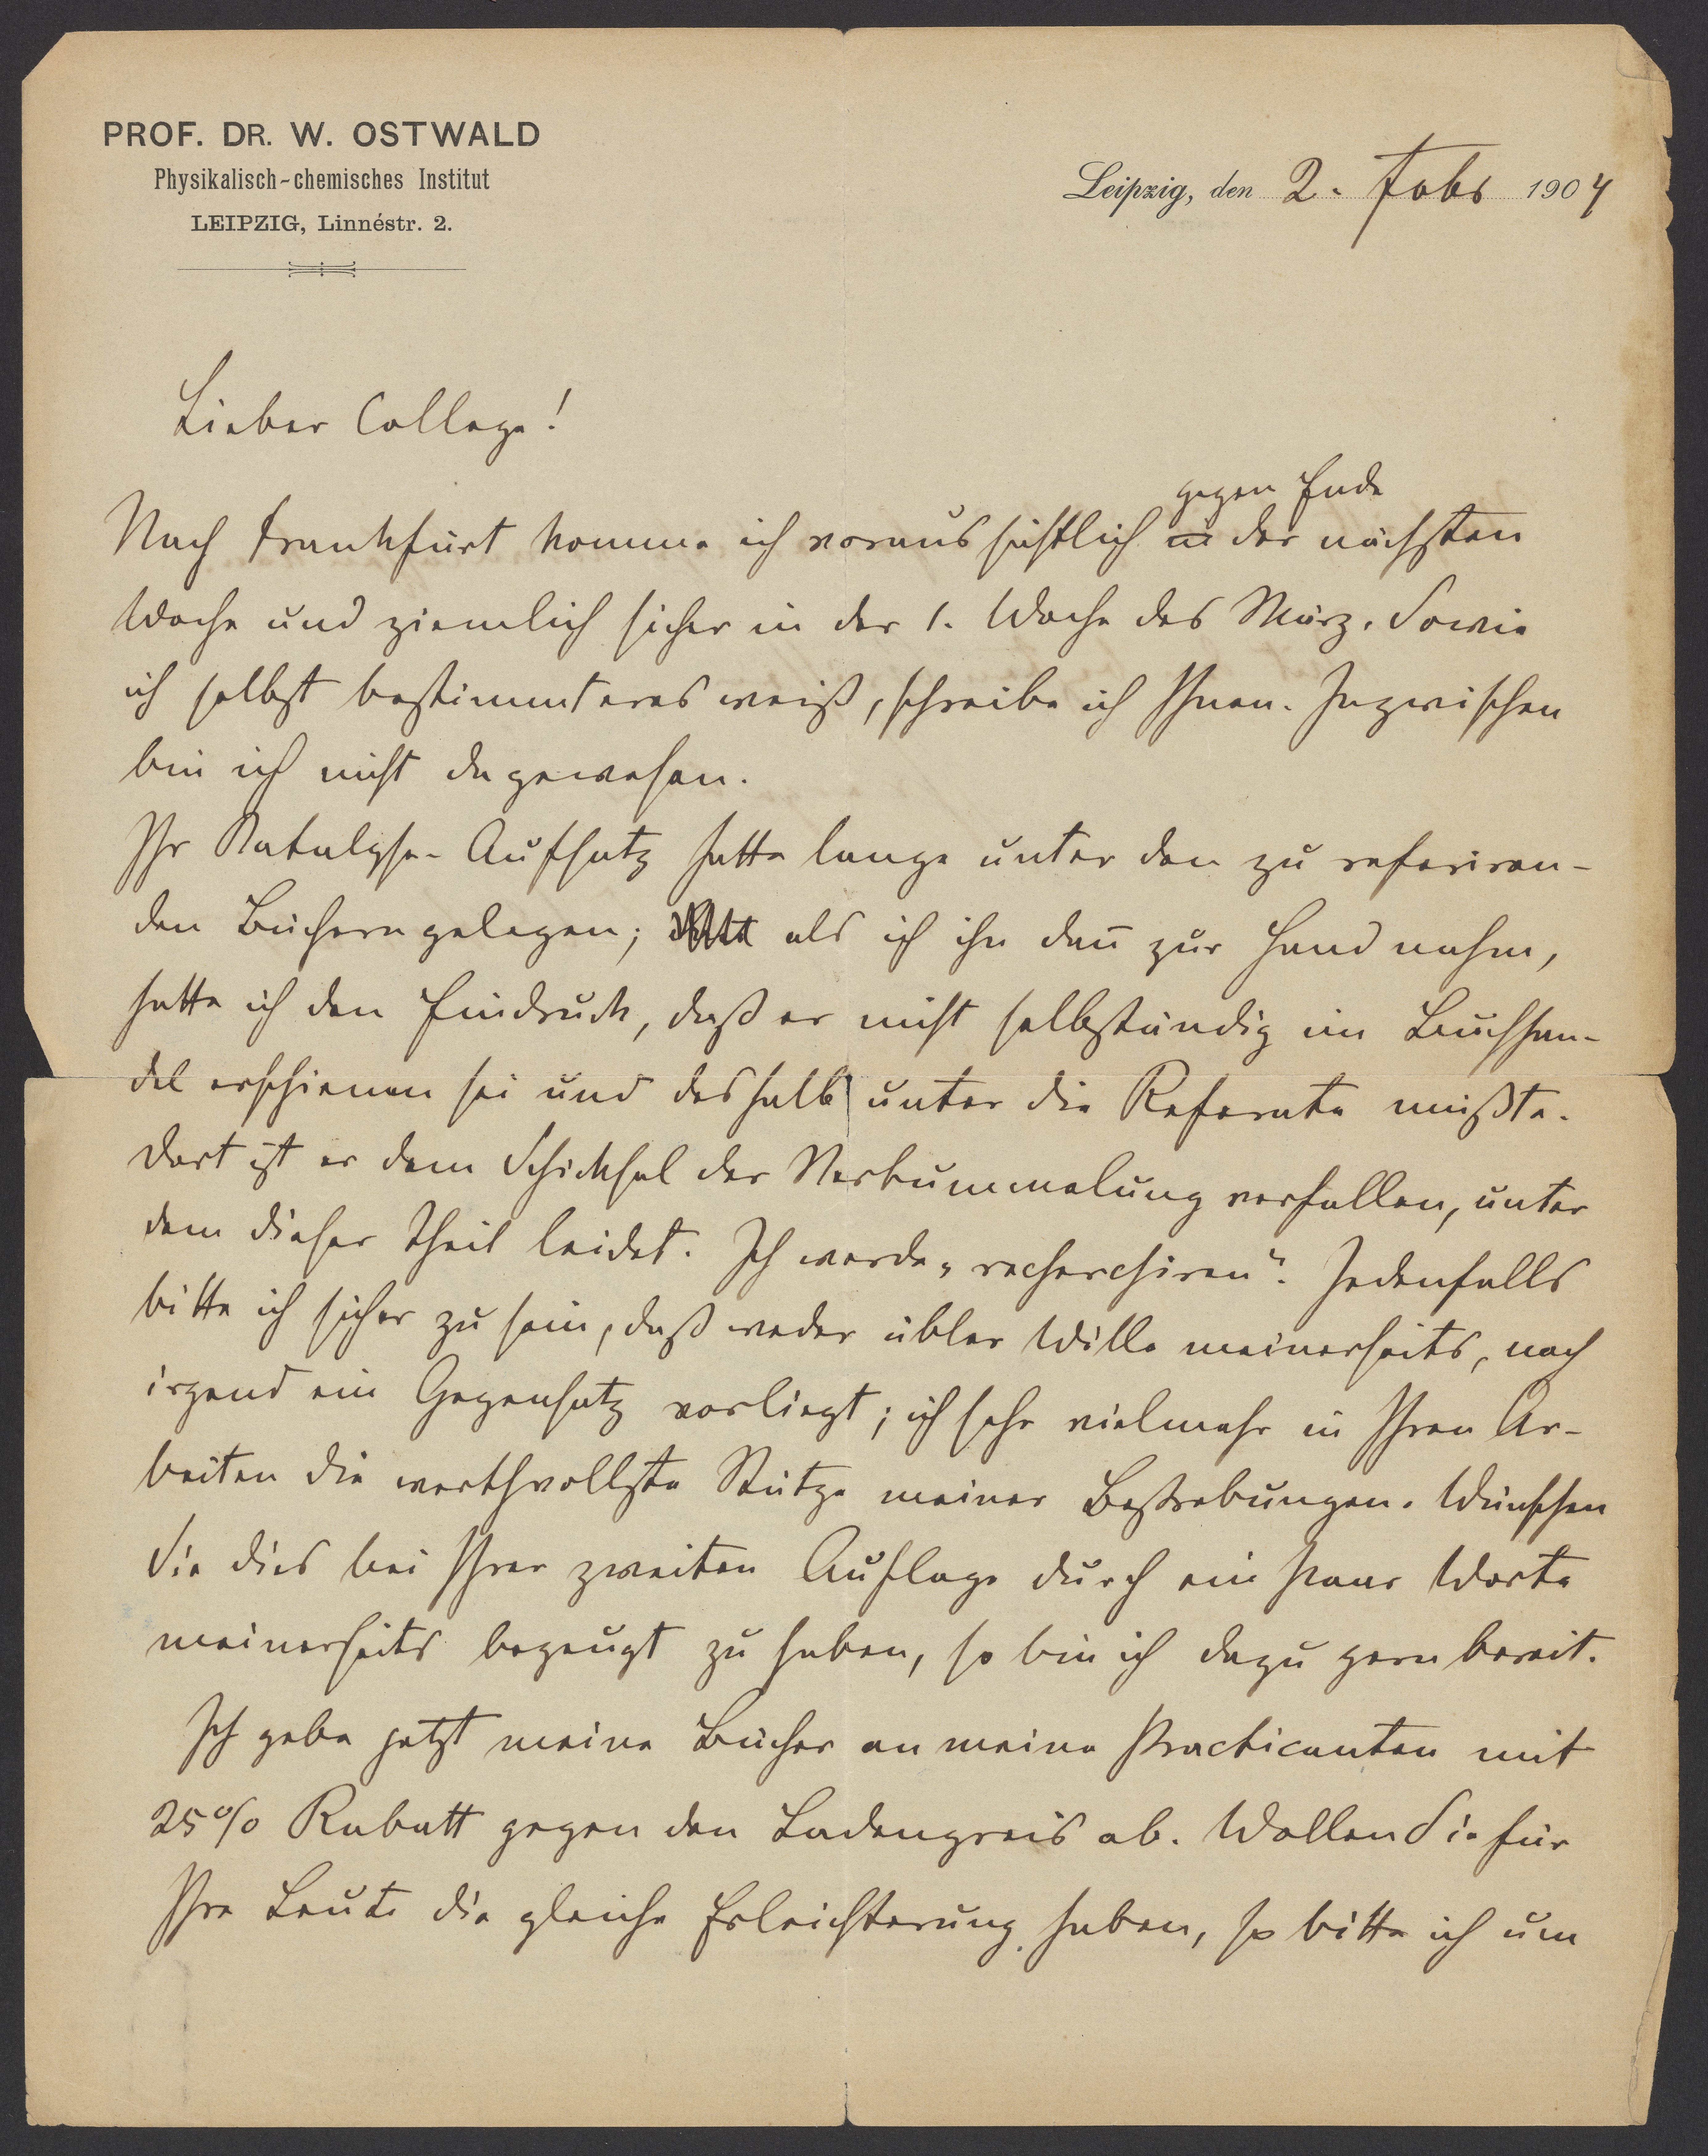 PROF. DR. W. OSTWALD
Physikalisch-chemisches Institut
LEIPZIG, Linnéstr. 2.
Leipzig, den 2. Febr 1904
Lieber College!
gegen Ende
Nach Frankfurt komme ich voraussichtlich in der nächsten
Woche und ziemlich sicher in der 1. Woche des März. Sowie
ich selbst bestimmteres weiß, schreibe ich Ihnen. Inzwischen
bin ich nicht dagewesen.
Ihr Katalyse-Aufsatz hatte lange unter den zu referiren-
den Büchern gelegen; als ich ihn dan̄ zur Hand nahm,
hatte ich den Eindruck, daß er nicht selbständig im Buchhan-
del erschienen sei und deshalb unter die Referate mußte.
Dort ist er dem Schicksal der Verbummelung verfallen, unter
dem dieser Theil leidet. Ich werde „recherchiren“. Jedenfalls
bitte ich sicher zu sein, daß weder übler Wille meinerseits, noch
irgend ein Gegensatz vorliegt; ich sehe vielmehr in Ihren Ar-
beiten die werthvollste Stütze meiner Bestrebungen. Wünschen
Sie dies bei Ihrer zweiten Auflage durch ein paar Worte
meinerseits bezeugt zu haben, so bin ich dazu gern bereit.
Ich gebe jetzt meine Bücher an meine Practicanten mit
25% Rabatt gegen den Ladenpreis ab. Wollen Sie für
Ihre Leute die gleiche Erleichterung haben, so bitte ich um